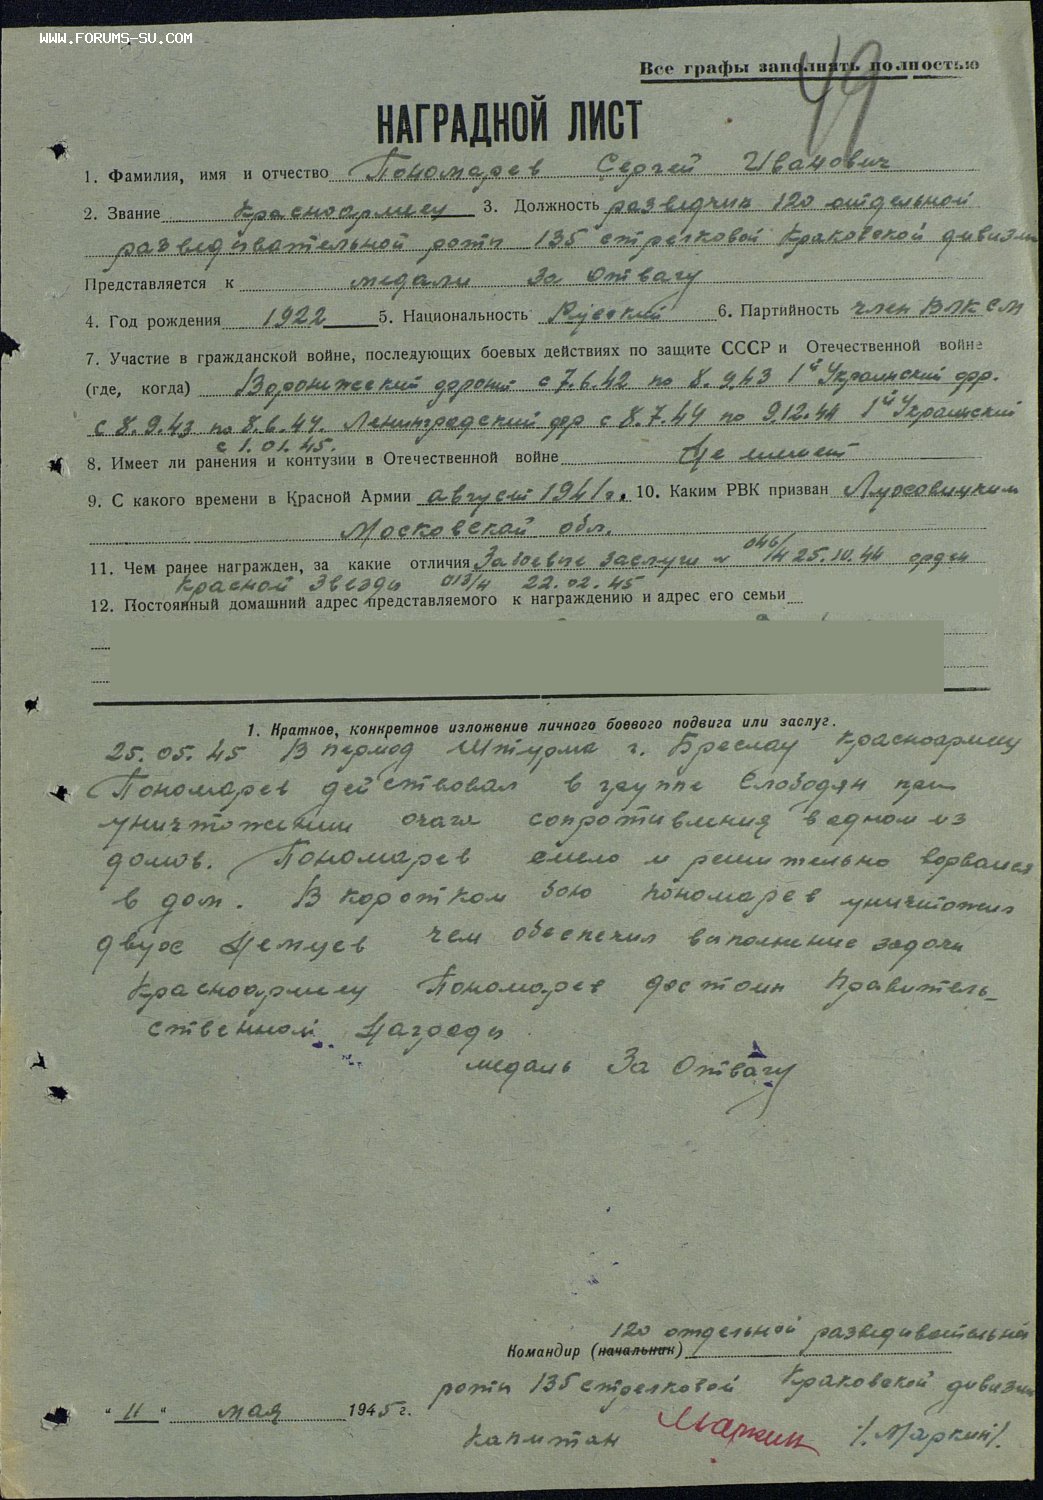 WWW.FORUMS-SU.COM
Все графы заполнять полностью
49
НАГРАДНОЙ ЛИСТ
1. Фамилия, имя и отчество Пономарев Сергей Иванович
2. Звание Красноармеец 3. Должность разведчик 120 отдельной
разведывательной роты 135 стрелковой Краковской дивизии
Представляется к медали За Отвагу
4. Год рождения 1922 5. Национальность Русский 6. Партийность член ВЛКСМ
7. Участие в гражданской войне, последующих боевых действиях по защите СССР и Отечественной войне
(где, когда) Воронежский фронт с 7.6.42 по 8.9.43 1й Украинский фр.
с 8.9.43 по 8.6.44. Ленинградский фр с 8.7.44 по 9.12.44 1й Украинский
с 1.01.45.
8. Имеет ли ранения и контузии в Отечественной войне Не имеет
9. С какого времени в Красной Армии август 1941 г. 10. Каким РВК призван Луховицким
Московской обл.
11. Чем ранее награжден, за какие отличия За боевые заслуги № 046/н 25.10.44 орден
Красной Звезды 013/н 22.02.45
12. Постоянный домашний адрес представляемого к награждению и адрес его семьи
1. Краткое, конкретное изложение личного боевого подвига или заслуг.
25.05.45 В период Штурма г. Бреслау Красноармеец
Пономарев действовал в группе Слободян при
уничтожении очага сопротивления в одном из
домов. Пономарев смело и решительно ворвался
в дом. В коротком бою Пономарев уничтожил
двух Немцев чем обеспечил выполнение задачи
Красноармеец Пономарев достоин Правитель-
ственной Награды
медаль За Отвагу
120 отдельной разведивательной
Командир (начальник)
роты 135 стрелковой Краковской дивизии
" 11 " мая 1945 г.
Капитан Маркин /Маркин/.